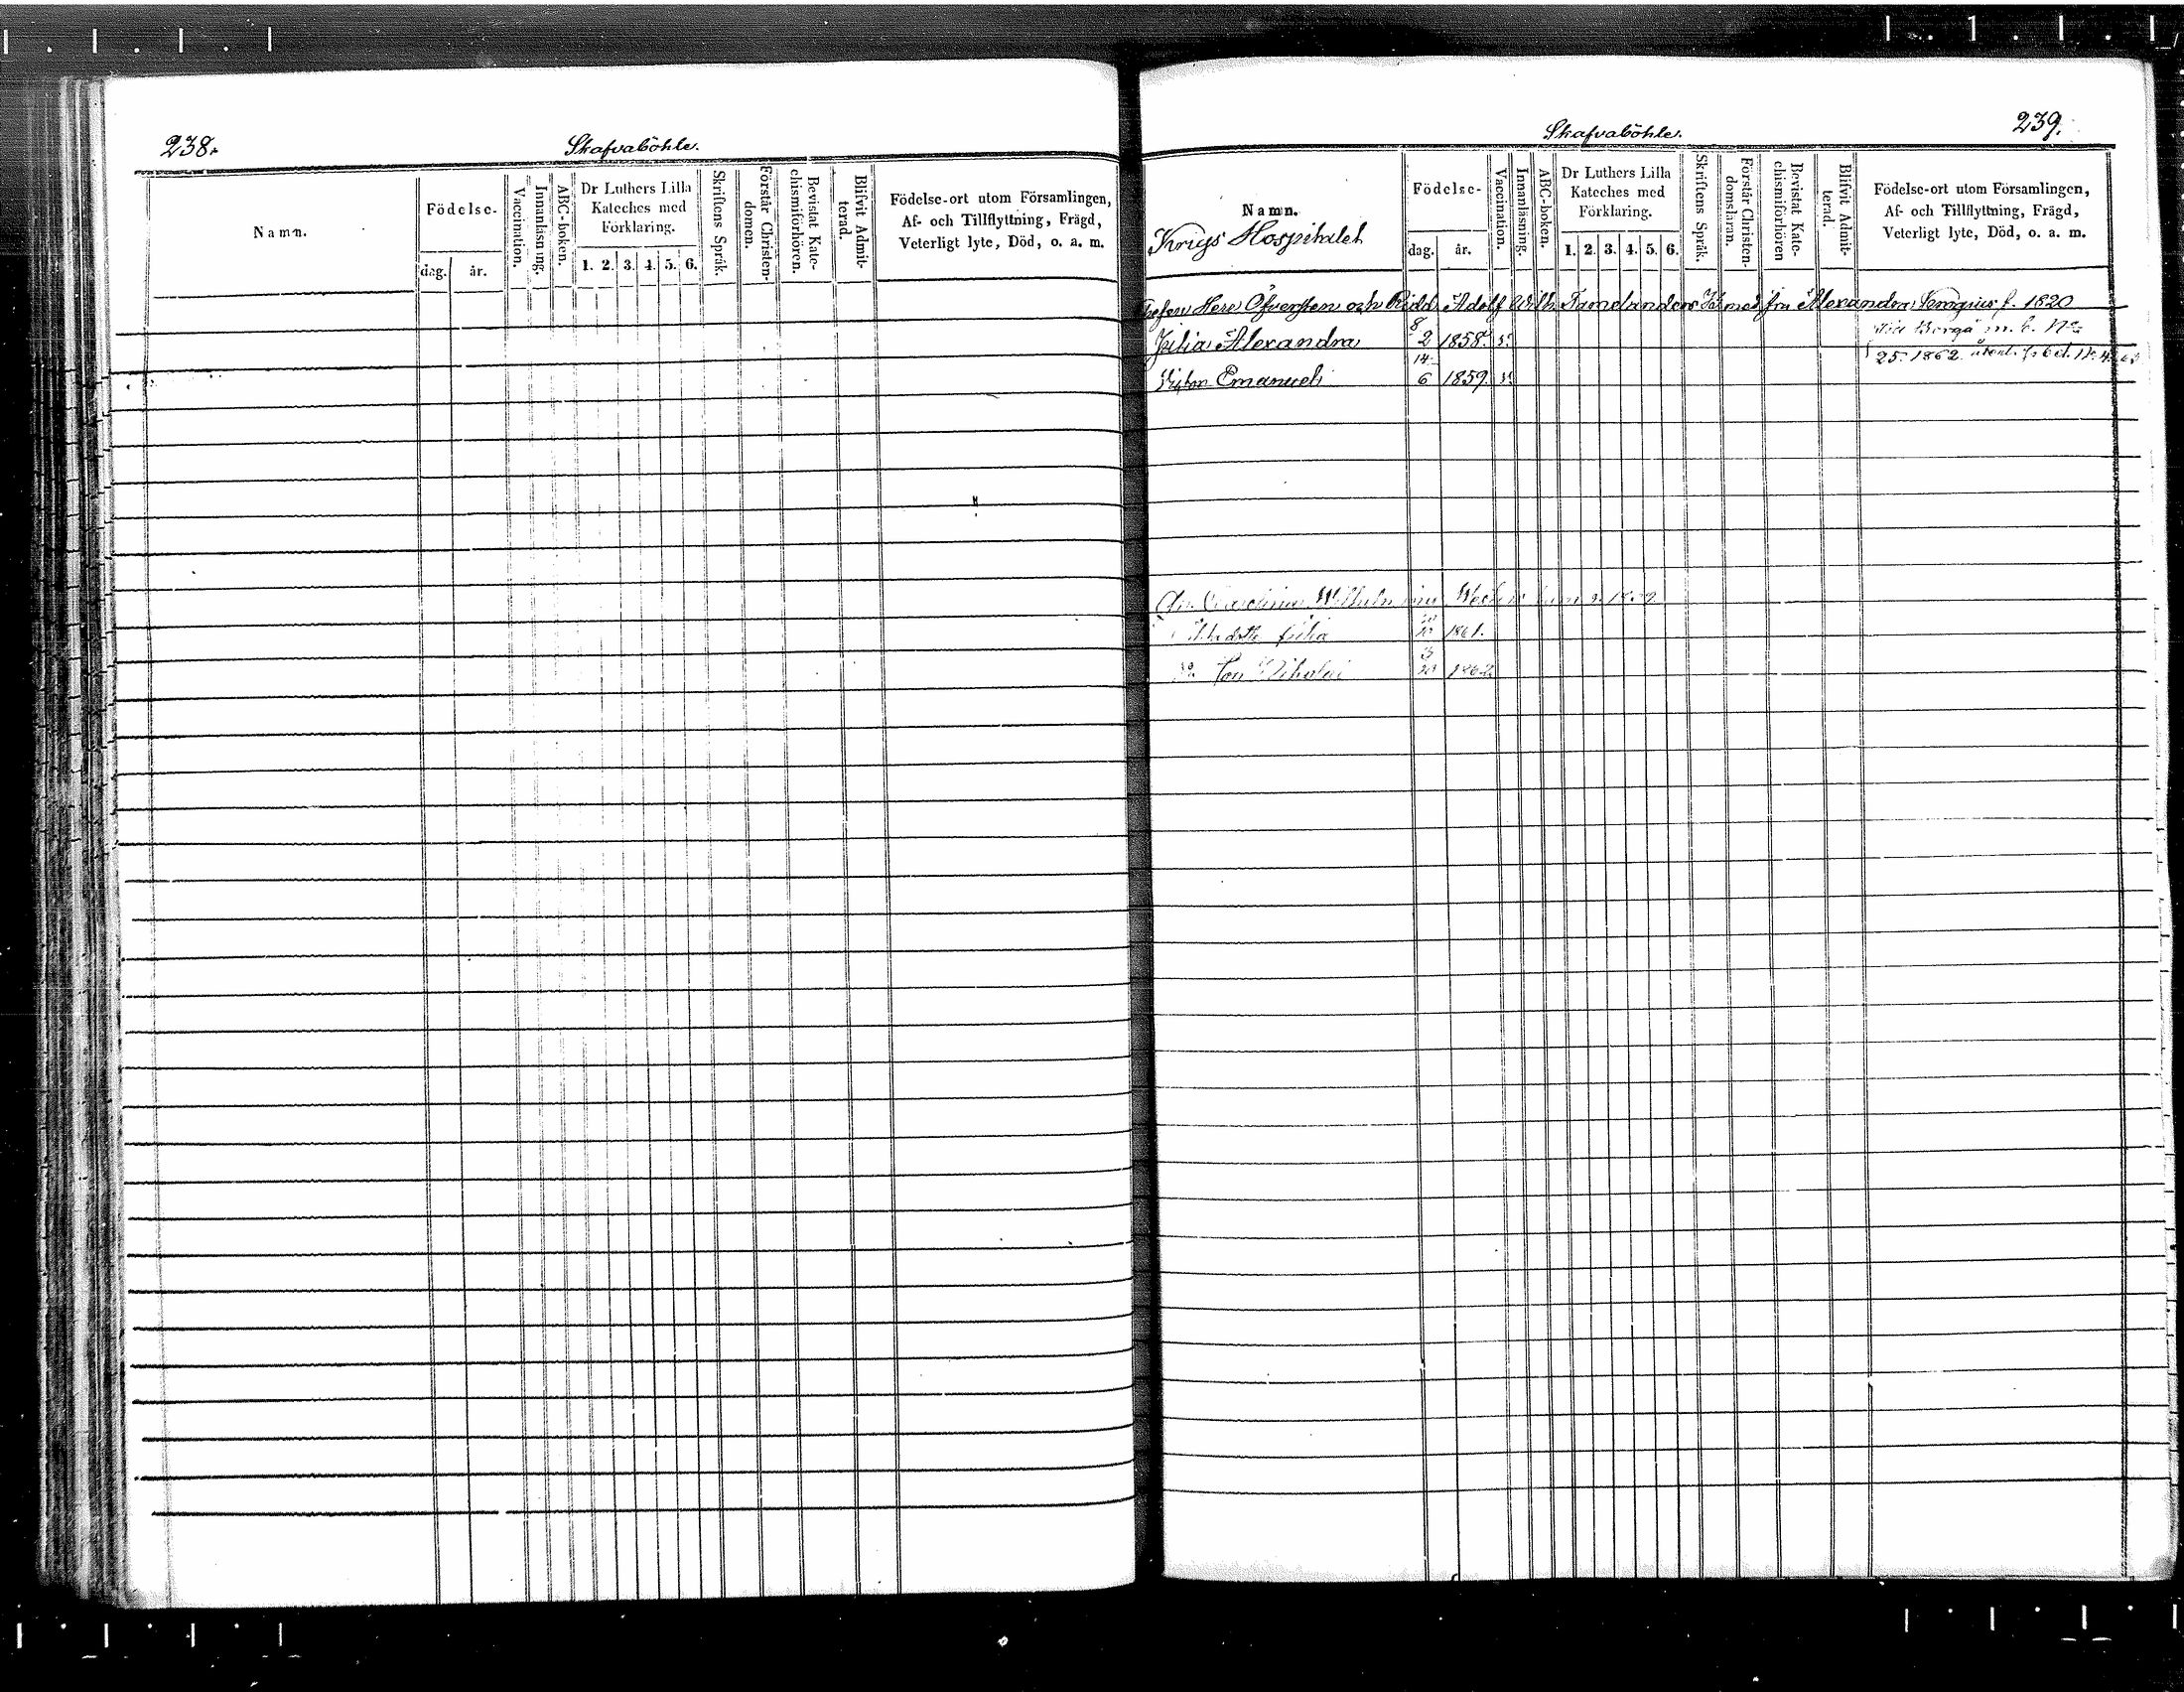 238.
Skafvaböhle.
Namn.
Födelse-
dag.
år.
Vaccination.
Innanläsning.
ABC-boken.
Dr Luthers Lilla
Kateches med
Förklaring.
1. 2. 3. 4. 5. 6.
Skriftens Språk.
Förstår Christen-
domen.
Bevistat Kate-
chismiförhören.
Blifvit Admit-
terad.
Födelse-ort utom Församlingen,
Af- och Tillflyttning, Frägd,
Veterligt lyte, Död, o. a. m.
239.
Skafvaböhle.
Namn.
Krigs Hospitalet
Födelse-
dag.
år.
Vaccination.
Innanläsning.
ABC-boken.
Dr Luthers Lilla
Kateches med
Förklaring.
1. 2. 3. 4. 5. 6.
Skriftens Språk.
Förstår Christen-
domsläran.
Bevistat Kate-
chismiförhören
Blifvit Admit-
terad.
Födelse-ort utom Församlingen,
Af- och Tillflyttning, Frägd,
Veterligt lyte, Död, o. a. m.
Herr Öfversten och Ridd. Adolf Wilh. med fru Alexandra f. 1820
Julia Alexandra 8 2 1858. Borgå m. b. No
25. 1862.
Emanuel 14 6 1859.
Carolina Wilhelmina
Julia 1861.
Son Nikolai 1862